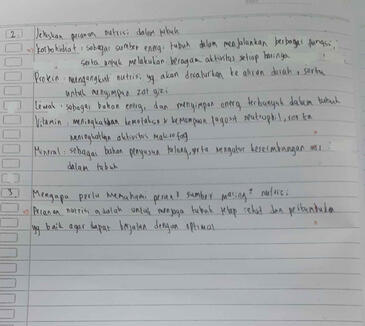 2. Jelaskan peranan nutrisi dalam tubuh
Karbohidrat : sebagai sumber energi tubuh dalam menjalankan berbagai fungsi,
serta untuk melakukan beragam aktivitas setiap harinya.
Protein : mengangkut nutrisi yg akan disalurkan ke aliran darah, serta
untuk menyimpan zat gizi
Lemak : sebagai bahan energi, dan menyimpan energi terbanyak dalam tubuh
Vitamin : meningkatkan & kemampuan fagosit neutrophil, serta
meningkatkan aktivitas makrofag
Mineral : sebagai bahan penyusun tulang, serta mengatur keseimbangan
dalam tubuh
3. Mengapa perlu memahami peran² sumber masing² nutrisi
Peranan nutrisi adalah untuk menjaga tubuh tetap sehat dan
yg baik agar dapat berjalan dengan optimal